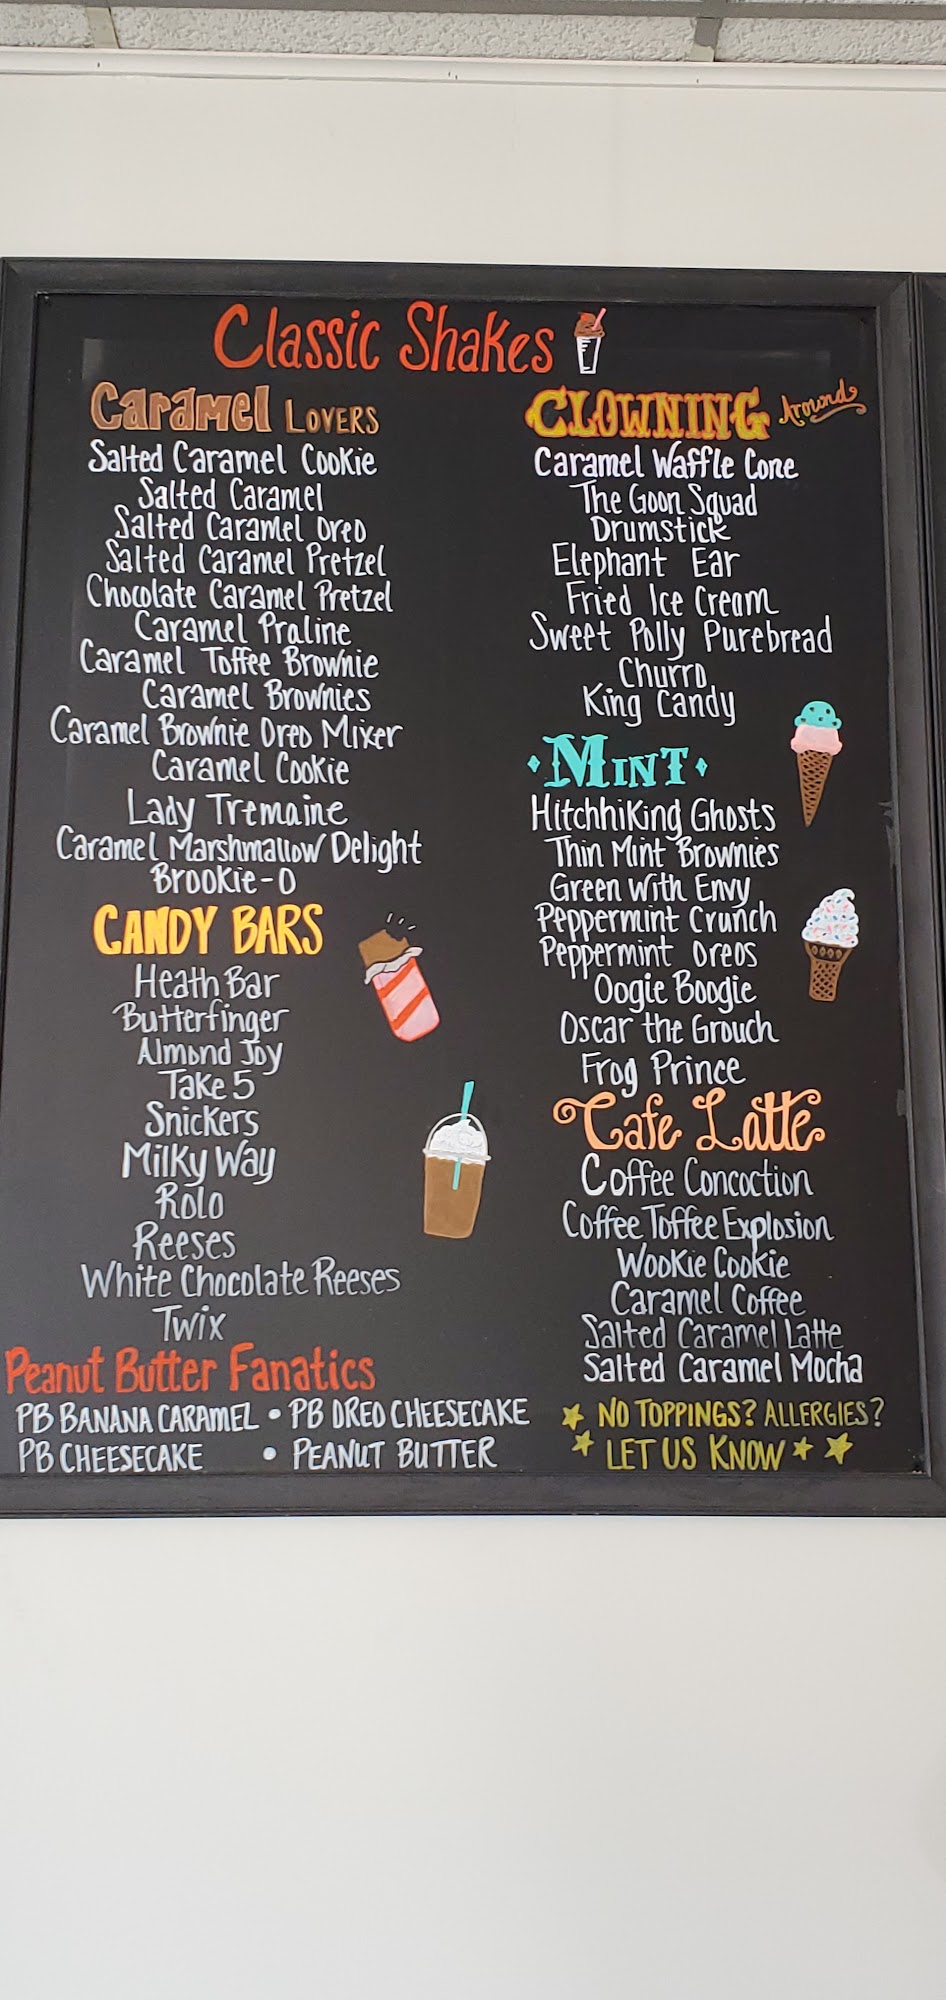 Classic Shakes
Caramel Lovers
Salted Caramel Cookie
Salted Caramel
Salted Caramel Oreo
Salted Caramel Pretzel
Chocolate Caramel Pretzel
Caramel Praline
Caramel Toffee Brownie
Caramel Brownies
Caramel Brownie Oreo Mixer
Caramel Cookie
Lady Tremaine
Caramel Marshmallow Delight
Brookie-O
CANDY BARS
Heath Bar
Butterfinger
Almond Joy
Take 5
Snickers
Milky Way
Rolo
Reeses
White Chocolate Reeses
Twix
Peanut Butter Fanatics
PB BANANA CARAMEL • PB OREO CHEESECAKE
PB CHEESECAKE • PEANUT BUTTER
CLOWNING Around
Caramel Waffle Cone
The Goon Squad
Drumstick
Elephant Ear
Fried Ice Cream
Sweet Polly Purebread
Churro
King Candy
MINT
Hitchhiking Ghosts
Thin Mint Brownies
Green With Envy
Peppermint Crunch
Peppermint Oreos
Oogie Boogie
Oscar the Grouch
Frog Prince
Cafe Latte
Coffee Concoction
Coffee Toffee Explosion
Wookie Cookie
Caramel Coffee
Salted Caramel Latte
Salted Caramel Mocha
NO TOPPINGS? ALLERGIES?
LET US KNOW